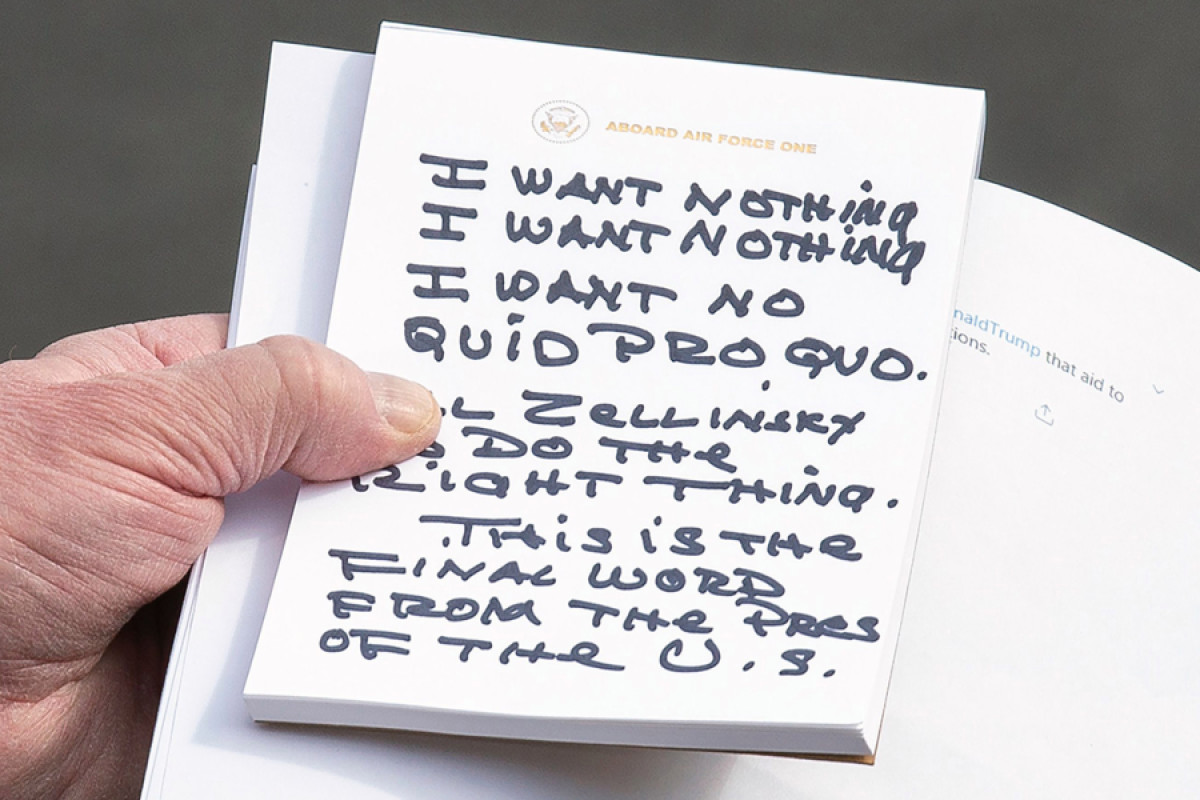 ABOARD AIR FORCE ONE
I WANT NOTHING
I WANT NOTHING
I WANT NO
QUID PRO QUO.
ZELLINSKY
DO THE
RIGHT THING.
THIS IS THE
FINAL WORD
FROM THE PRES
OF THE U.S.
naldTrump that aid to
ions.